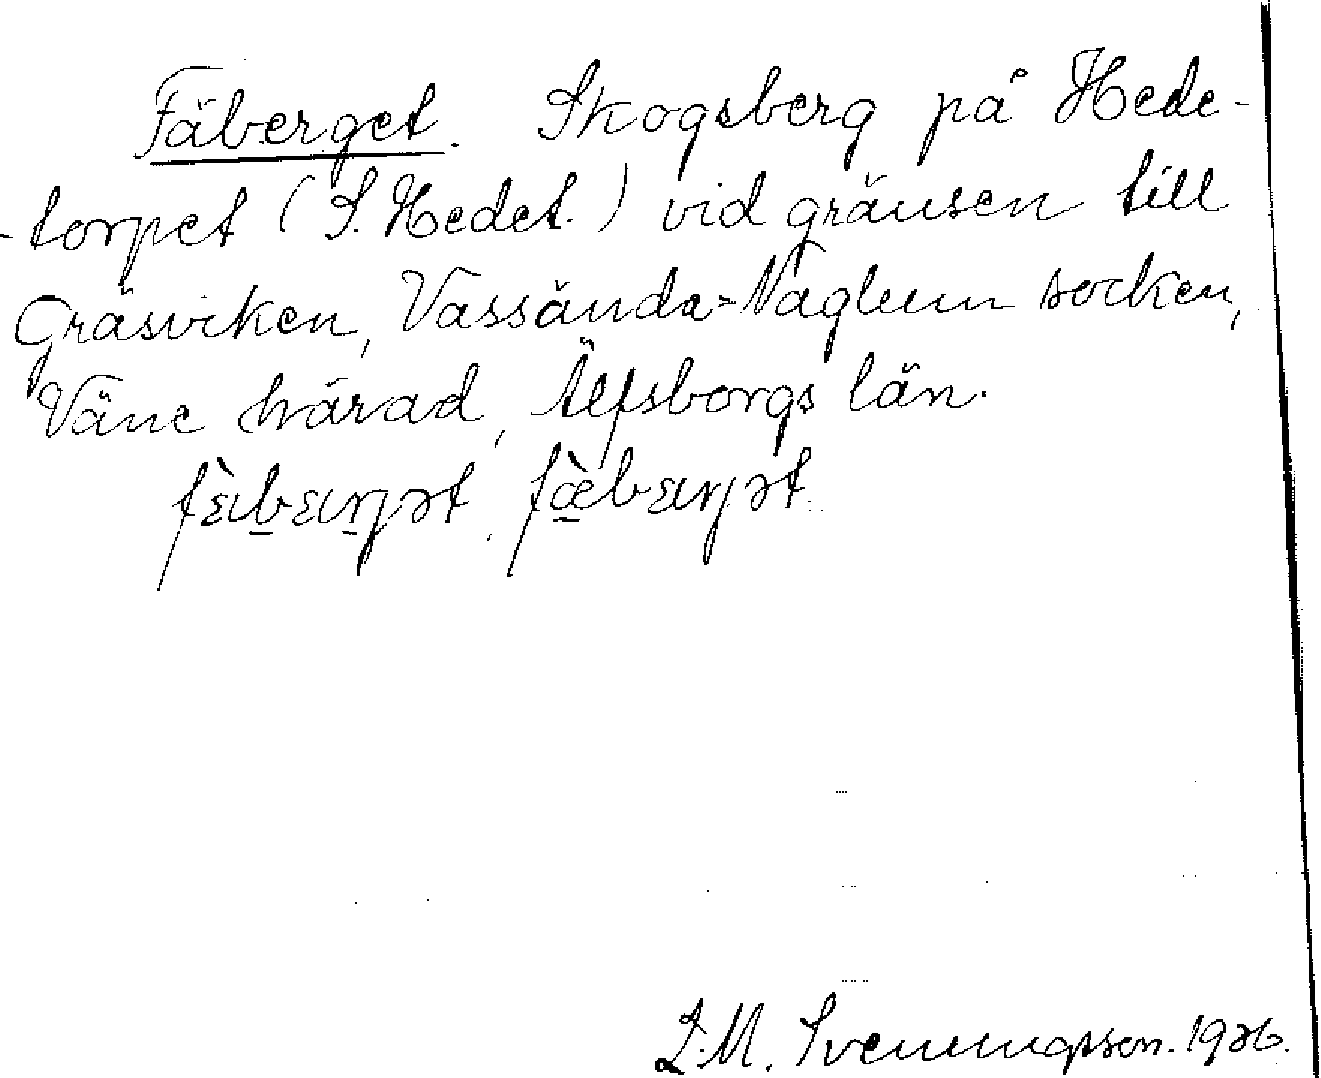 Fäberget. Skogsberg på Hede-
-torpet (S. Hedet.) vid gränsen till
Gräsviken, Vassända-Naglum socken,
Väne härad, Älfsborgs län.
L.M. Svenungsson. 1926.